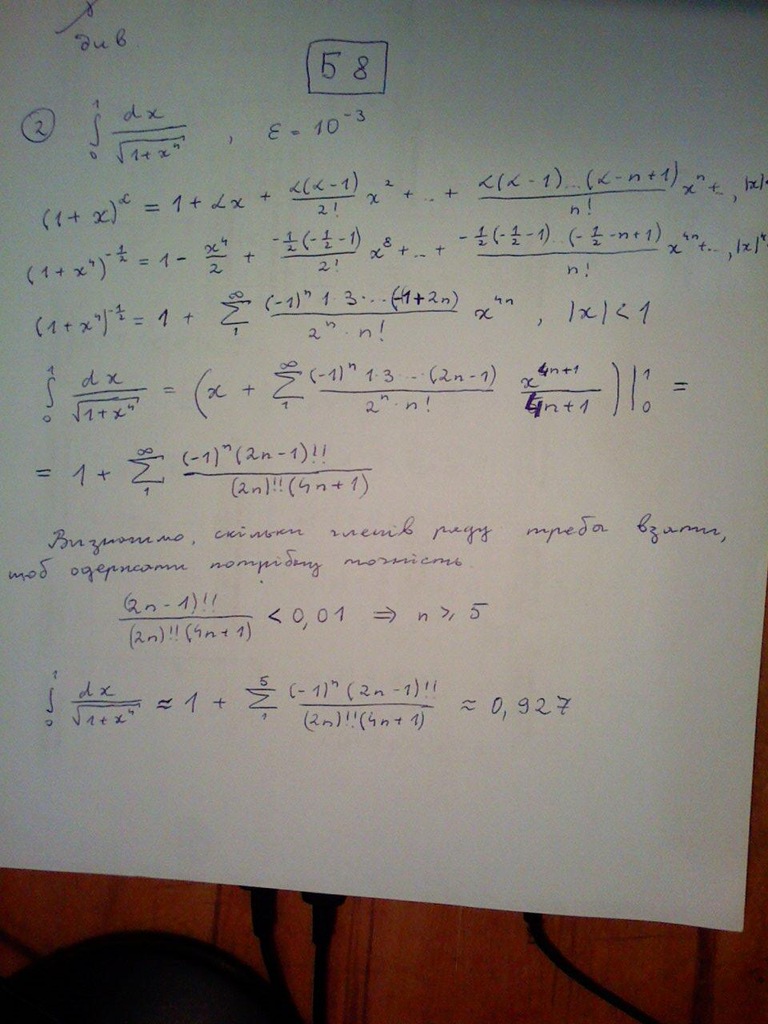 див
Б 8
② ∫₀¹ dx/√(1+x⁴) , ε = 10⁻³
(1+x)^α = 1 + αx + α(α-1)/2! x² + ... + α(α-1)...(α-n+1)/n! xⁿ + ..., |x|<
(1+x⁴)^(-1/2) = 1 - x⁴/2 + -1/2(-1/2-1)/2! x⁸ + ... + -1/2(-1/2-1)...(-1/2-n+1)/n! x⁴ⁿ + ..., |x|⁴
(1+x⁴)^(-1/2) = 1 + ∑₁^∞ (-1)ⁿ 1·3·...(-1+2n)/2ⁿ·n! x⁴ⁿ , |x|<1
∫₀¹ dx/√(1+x⁴) = (x + ∑₁^∞ (-1)ⁿ 1·3...(2n-1)/2ⁿ·n! x⁴ⁿ⁺¹/4n+1)|₀¹ =
= 1 + ∑₁^∞ (-1)ⁿ(2n-1)!!/(2n)!!(4n+1)
Визначимо, скільки членів ряду треба взяти,
щоб одержати потрібну точність
(2n-1)!!/(2n)!!(4n+1) < 0,01 ⇒ n ≥ 5
∫₀¹ dx/√(1+x⁴) ≈ 1 + ∑₁⁵ (-1)ⁿ(2n-1)!!/(2n)!!(4n+1) ≈ 0,927